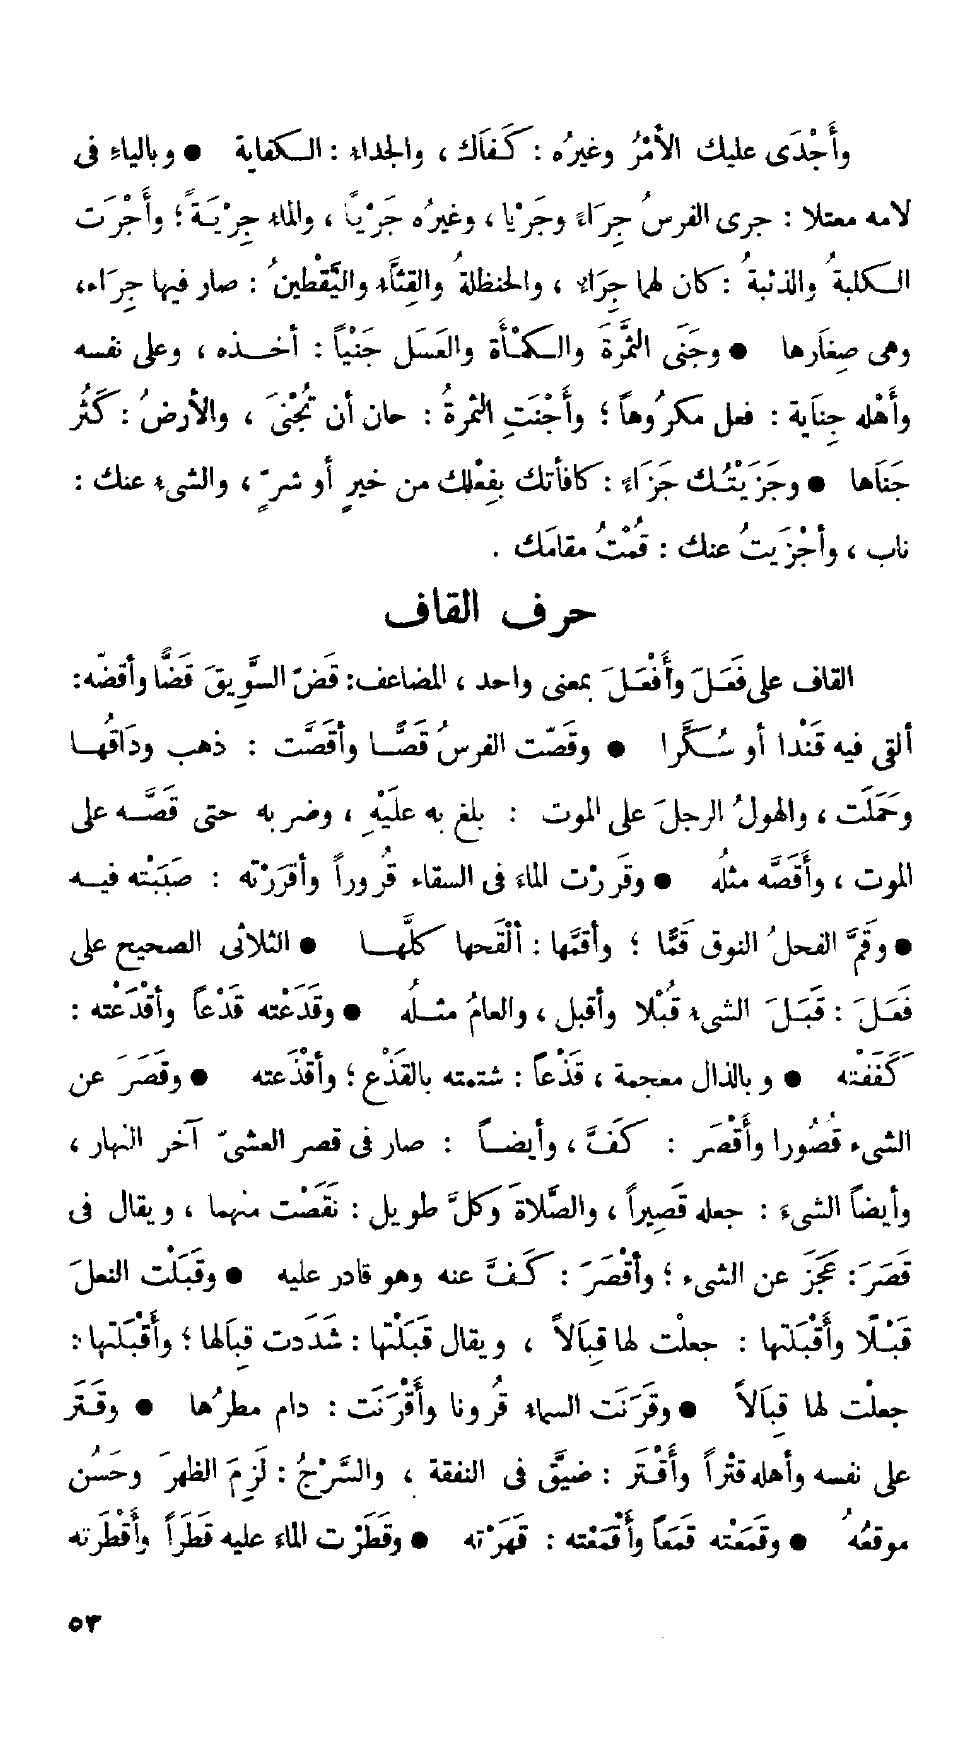 وأَجْدَى عليك الأمْرُ وغيرُه : كَفَاك ، والجداء : الكفاية ● وبالياء فى
لامه معتلا : جرى الفرسُ جِرَاءً وجَرْيا ، وغيرُه جَرْيًا ، والماء جِرْيَةً ؛ وأَجْرَت
الكلبةُ والذئبةُ : كان لهما جِرَاء ، والحنظلةُ والقِثَّاء واليَقْطينُ : صار فيها جِرَاء،
وهى صِغَارها ● وجَنَى الثمَّرَةَ والكمْأَة والعَسَل جَنْياً : أخذه ، وعلى نفسه
وأَهْله جِنَاية : فعل مكرُوهاً ؛ وأَجْنَتِ الثمرةُ : حان أن تُجْنَى ، والأرضُ : كَثُر
جَنَاها ● وجَزَيْتُك جَزَاءً : كافأتك بفِعْلك من خيرٍ أو شرٍّ ، والشىء عنك :
ناب ، وأجْزَيتُ عنك : قُمْتُ مقامَك .
حرف القاف
القاف على فَعَلَ وأَفْعَلَ بمعنى واحد ، المضاعف: قَضّ السوَّيِقَ قَضًّا وأقضّه:
ألقى فيه قَنْدا أو سُكَّرا ● وقصّت الفرسُ قَصًّا وأقصَّت : ذهب ودَاقُها
وحَمَلَت ، والهولُ الرجلَ على الموت : بلغ به علَيْهِ ، وضربه حتى قَصَّه على
الموت ، وأَقَصَّه مثلُه ● وقَررْت الماءَ فى السقاء قُروراً وأقرَرْته : صَبَبْته فيه
● وقَمَّ الفحلُ النوق قَمًّا ؛ وأقمَّها : ألْقَحها كلَّها ● الثلاثى الصحيح على
فَعَلَ : قَبَلَ الشىء قُبْلا وأقبل ، والعامُ مثلُه ● وقَدَعْته قَدْعاً وأقْدَعْته :
كَفَفْته ● وبالذال معجمة ، قَذْعاً : شتمته بالقَذْع ؛ وأقْذَعته ● وقَصَرَ عن
الشىء قُصُورا وأَقْصَر : كَفَّ ، وأيضاً : صار فى قصر العشىّ آخر النهار ،
وأيضاً الشىءَ : جعله قَصِيراً ، والصَّلاةَ وكلَّ طويل : نَقَصْت منهما ، ويقال فى
قَصَرَ : عَجَزَ عن الشىء ؛ وأقْصَرَ : كَفَّ عنه وهو قادر عليه ● وقَبَلْت النعلَ
قَبْلًا وأَقْبَلتها : جعلْت لها قِبَالاً ، ويقال قَبَلْتها : شَدَدت قِبَالها ؛ وأَقْبَلتها :
جعلْت لها قِبَالاً ● وقَرَنَت السماء قُرونا وأَقْرَنَت : دام مطرُها ● وقَتَر
على نفسه وأهله قتْراً وأَقْتَر : ضيَّق فى النفقة ، والسَّرْجُ : لَزِمَ الظهرَ وحَسُن
موقعُهُ ● وقَمَعْته قَمَعاً وأَقْمَعْته : قَهَرْته ● وقَطَرْت الماءَ عليه قَطَراً وأَقْطَرته
٥٣